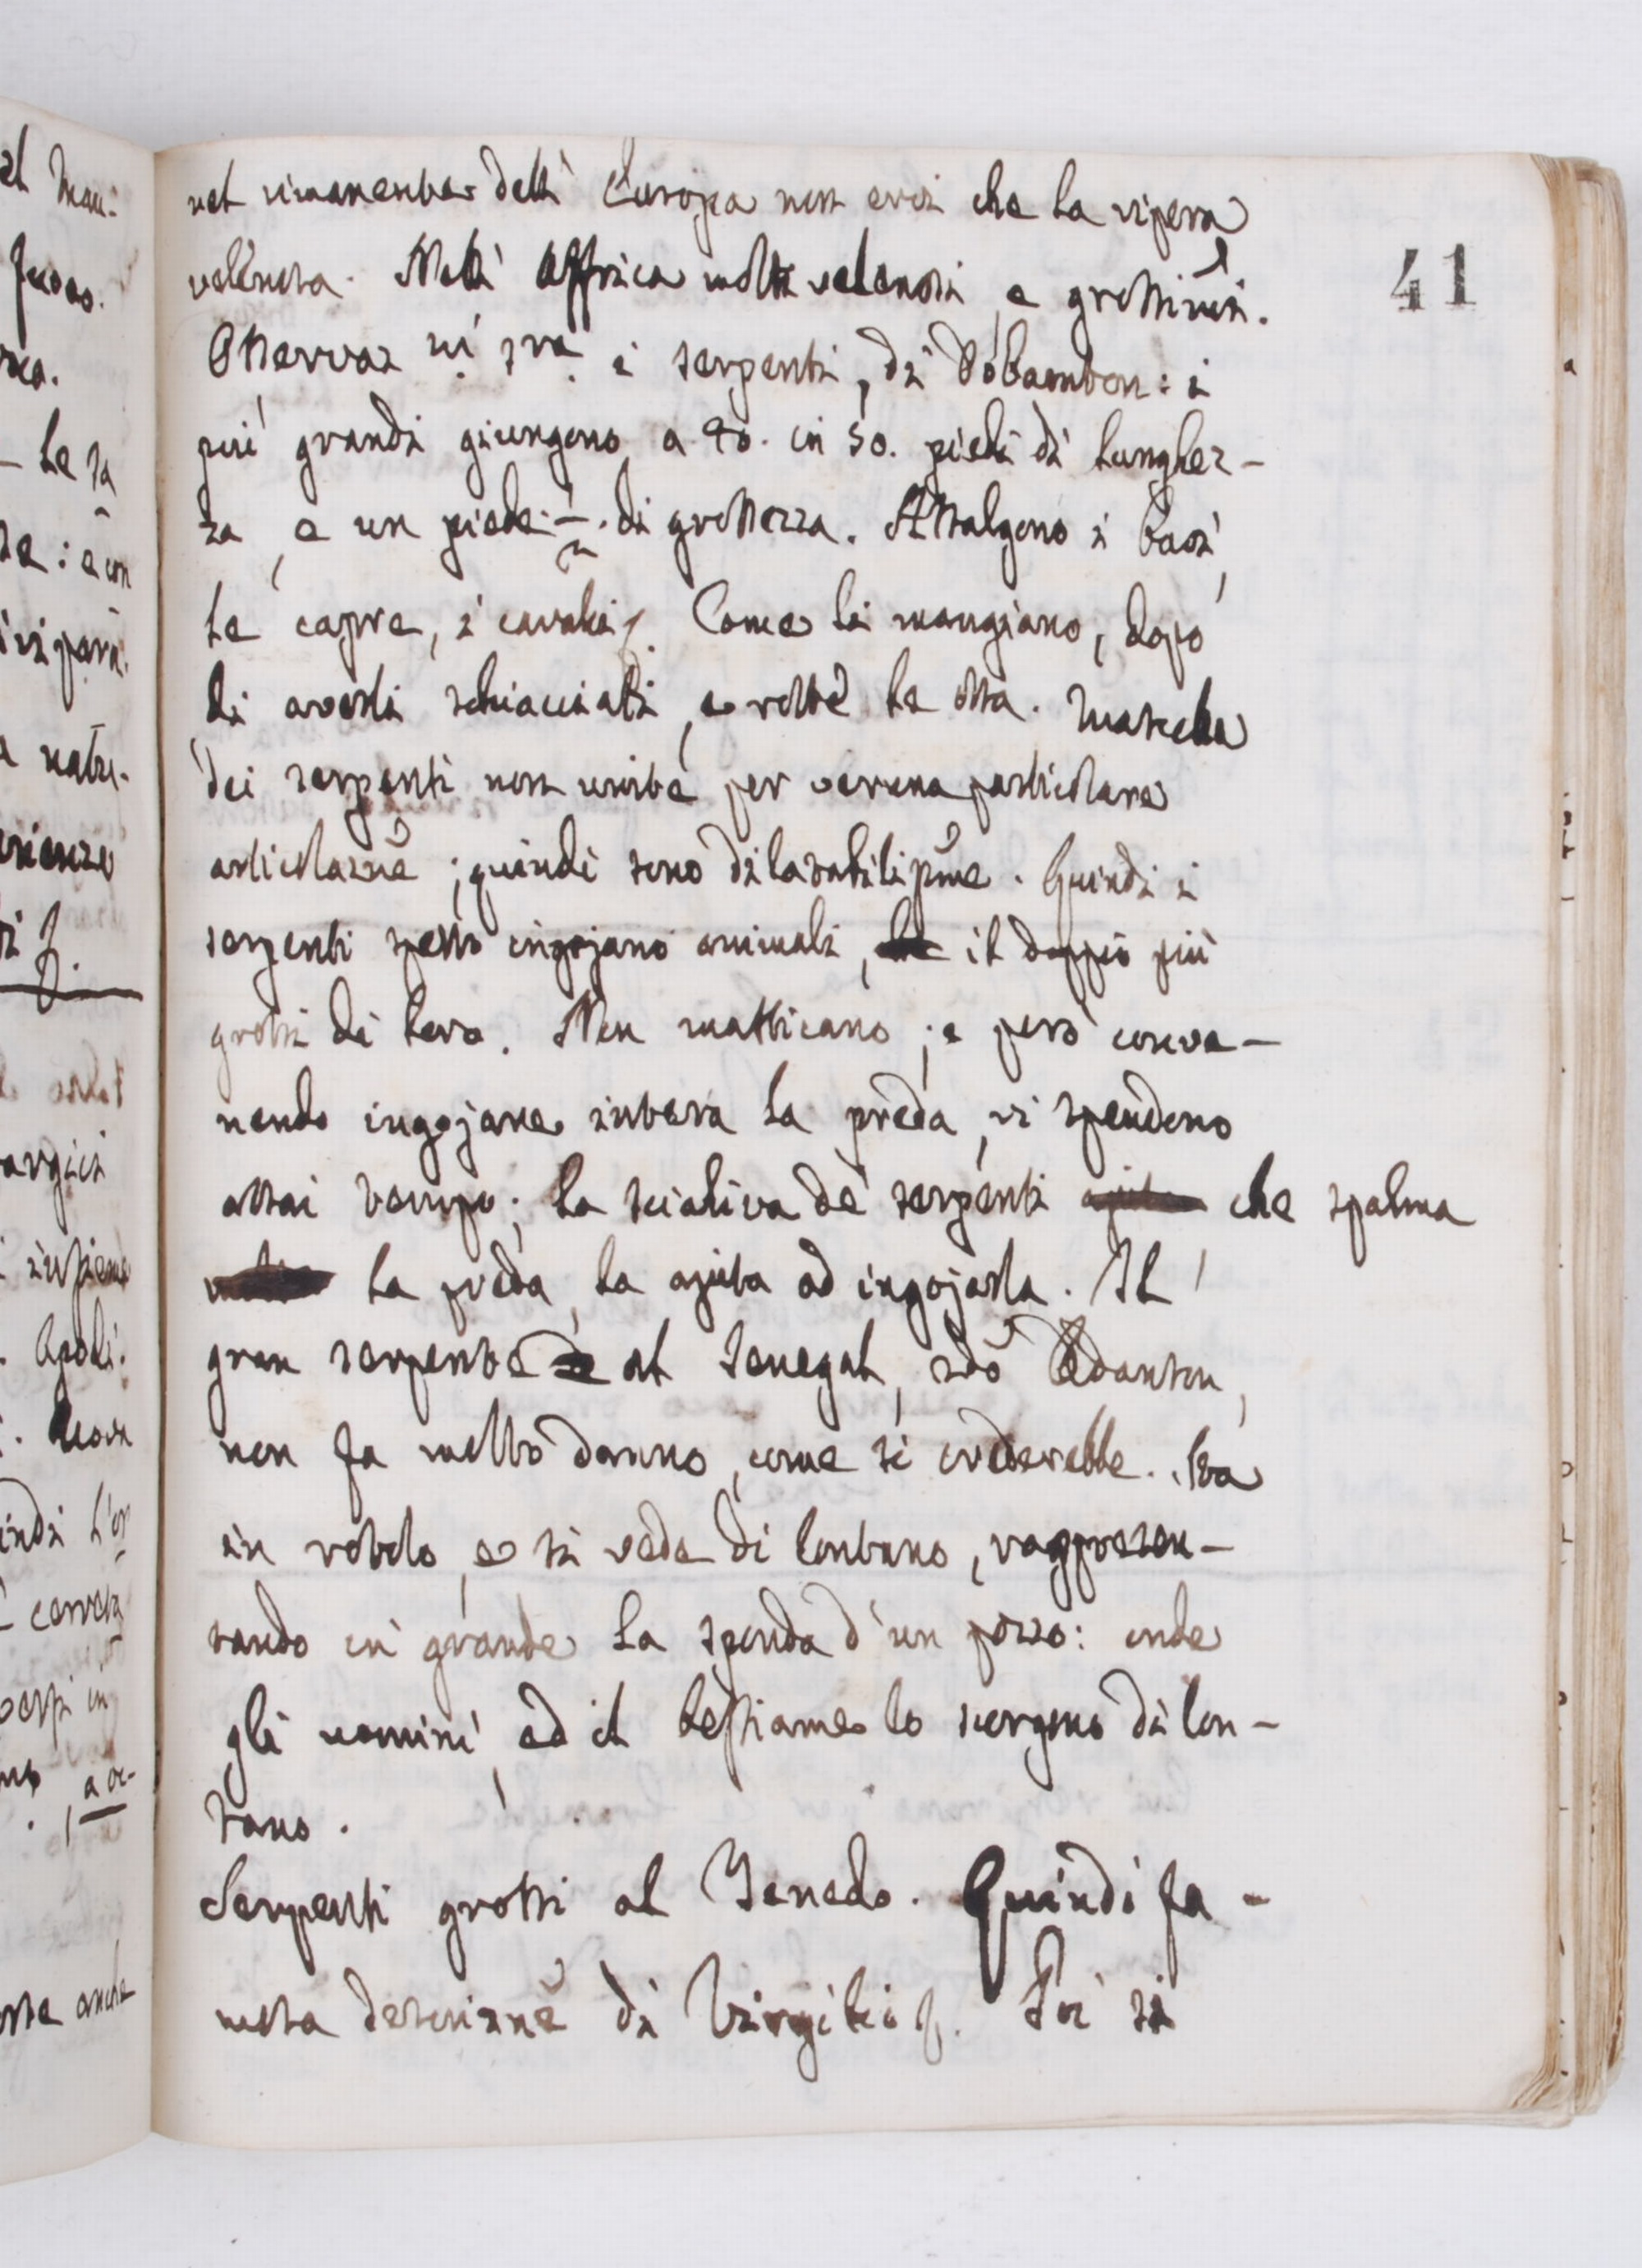 41
nel rimanente dell' Europa non evvi che la vipera
velenosa. Nell' Affrica molti velenosi, e grossiᵐⁱ.
Osservaz
i serpenti, di
più grandi giungono a 40. in 50. piedi di lunghez-
za, e un piede ½. di grossezza. Assalgono i bovi,
le capre, i cavalli &. Come li mangiano, dopo
di averli schiacciati, e rotte le ossa. Mascella
dei serpenti non unita per veruna particolare
articolazñe; quindi sono dilatabilipme. Quindi i
serpenti spesso ingojano animali, il doppio più
grossi di loro. Non masticano; e però conve-
nendo ingojare intera la preda, vi spendono
assai tempo; la scialiva de' serpenti che spalma
la preda, la ajuta ad ingojarla. Il
gran serpente al Senegal, sdõ Adanson,
non fa molto danno, come si crederebbe. Sta
in rotolo, e si vede di lontano, rappresen-
tando in grande la sponda d'un pozzo: onde
gli uomini, ed il bestiame lo scorgono di lon-
tano.
Serpenti grossi al Tenedo. Quindi fa-
mosa descrizñe di Virgilio &. Poi si